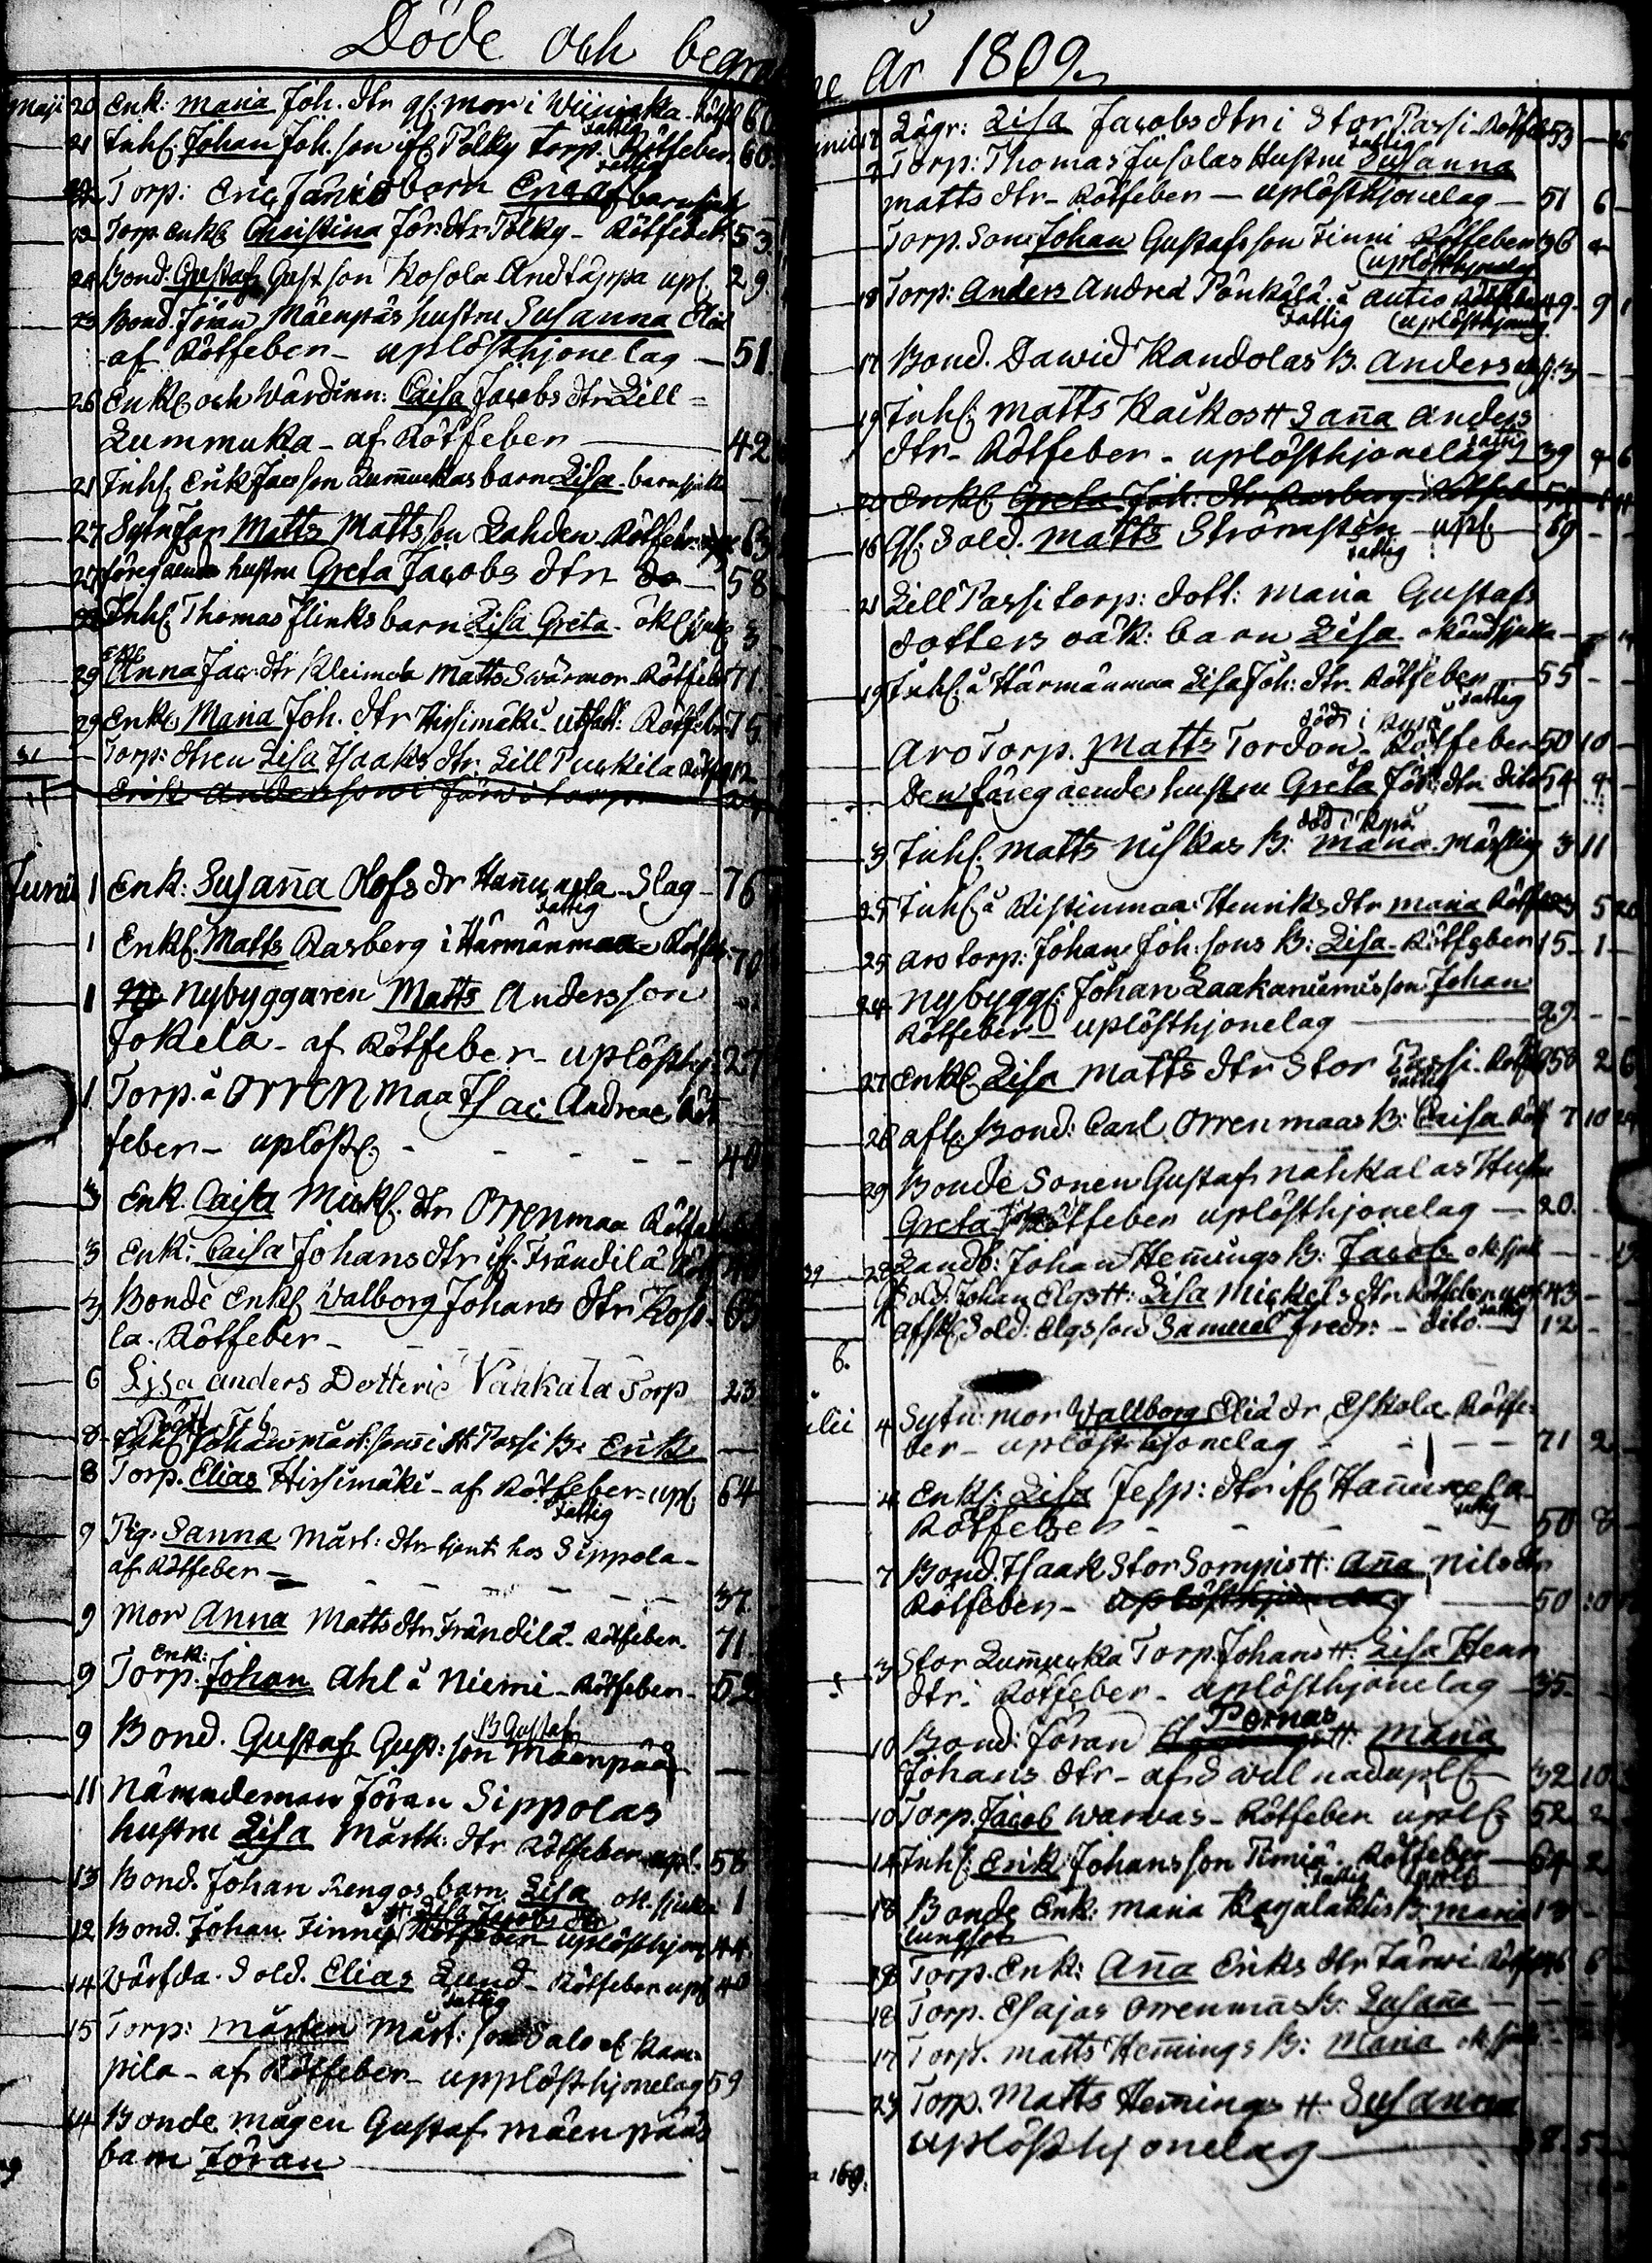 Döde och begraf
Maji 20 Enk: Maria Joh. dtr gl: mor i Wiiniska Rötf 60
21 Inh: Johan Joh. son ifr. Pölky torp. Rötfeber 60
fattig
22 Torp: Eric Järvis barn Eric af barnsjuk
23 Torp. Enk: Christina Jör. dtr Pölky - Rötfeber. 53
24 Bond: Gustaf Gust son Kosola Andtåppa upl. 29
23 Bond. Jöran Mäenpäs hustru Susanna Eliæ
af Rötfeber - uplöst hjonelag - 51
26 Enk: och Wärdinn: Caisa Jacobs dtr Lill =
Lummuka - af Rötfeber 42
21 Inh: Erik Jacs son Lummukas barn Lisa - barnsjukd
27 Sytn: far Matts Matts son Lahden Rötfeber 63
27 föregaende hustru Greta Jacobs dtr do - 58
Inh: Thomas Flinks barn Lisa Greta - ok: sjuk 3
29 Enk: Anna Jac: dtr Kleimola Matts Swärmor - Rötfeb 71
29 Enk: Maria Joh. dtr Hirsimäki - utfatt: Rötfeb 75
31 Torp: dtren Lisa Isaaks dtr Lill Puskila Rötf 12
Erik Anderssoni Järwi torp
Junii 1 Enk: Susanna Olofs dr Hannuxela - Slag - 76
fattig
1 Enk: Matts Rasberg i Härmänmaa - Rötfeb 70
1 Nybyggaren Matts Andersson
Jokela - af Rötfeber - uplösthj 27
1 Torp. å Orrenmaa Isac Andreæ Röt
feber - uplöst: - - - - 40
3 Enk. Caisa Mick: dtr Orrenmaa Rötfeb
3 Enk: Caisa Johans dtr ifr. Frändilä Röt
3 Bonde Enk: Walborg Johans dtr Koso-
la. Rötfeber - 65
6 Lisa anders Dotter i Vahkala Torp 23
Rött Feb
8 Inh: Johan Mårt: sons i St: Passi B: Erik -
8 Torp. Elias Hirsimäki - af Rötfeber - upl: 64
fattig
9 Pig: Sanna Mårt: dtr tjent hos Sippola -
af Rötfeber - 37.
9 Mor Anna Matts dtr Frändilä - Rötfeber. 71
Enk:
9 Torp. Johan Ahl å Niemi - Rötfeber - 52
B Gustaf
9 Bond. Gustaf Gust: son Mäenpää -
11 Nämndeman Jöran Sippolas
hustru Lisa Mårth: dtr Rötfeber upl. 58
13 Bond. Johan Rengos barn Lisa ok. sjukd 1
H: Lisa Jacobs dtr
12 Bond. Johan Finne Rötfeber uplöst hjon 44
14 Wärfda. Sold. Elias Lund - Rötfeber upl 40
fattig
15 Torp: Mårten Mårt: son Salo el Kam-
pila - af Rötfeber - upplöst hjonelag 59
14 Bonde mågen Gustaf Mäenpääs
barn Jöran -
ne År 1809.
Junii 12 Lägr: Lisa Jacobs dtr i Stor Passi - Rötfeb 53 - 26
fattig
Torp: Thomas Jusolas Hustru Susanna
Matts dtr - Rötfeber - uplöst hjonelag - 51 6
Torp. Son: Johan Gustafs son Finni Rötfeber 36 4
(uplöst hjonelag
18 Torp: Anders Andreæ Pönkälä å Autio Rötfeber 49 - 9 1
fattig (uplösthjonelag
17 Bond. Dawid Kandolas B. Anders 3 - -
19 Inh: Matts Kaikos H Sanna Anders
dtr - Rötfeber - uplösthjonelag 39 4 6
fattig
20 Enk: Greta Joh: dtr Rasberg - Rötfeb
16 gl: Sold. Matts Strömsten - upl: 69 - -
fattig
21 Lill Passi torp: dott: Maria Gustafs
dotters oäk: barn Lisa okänd sjukd
19 Inh: å Härmänmaa Lisa Joh: dtr. Rötfeber 55 - -
fattig
död i Rysa
Aro Torp. Matts Tordon - Rötfeber 50 10 -
Den föregaendes hustru Greta Joh: dtr dito 54 4 -
död i Rysa
3 Inh: Matts Niskas B: Maria. Mässling 3 11
25 Inh: å Ristinmaa: Henriks dtr Maria Rötf 5 20
25 Aro torp: Johan Joh: sons B: Lisa Rötfeber 15 - 1 -
24 Nybygg: Johan Laakaniemis son Johan
Rötfeber - uplösthjonelag 29. - -
27 Enk: Lisa Matts dtr Stor Passi - Rötf 58 2 6
fattig
28 afl: Bond: Carl Orrenmaas B: Caisa Röt 7 10 24
29 Bonde Sonen Gustaf Nahkalas Hustr
Greta Rötfeber uplösthjonelag - 20. -
28 Landb: Johan Hemings B: Jacob ok sjuk - - 19
gl: Sold. Johan Elgs H: Lisa Mickels dtr Rötfeber upl 43 -
fattig
afsk: Sold: Elgs son Samuel Fredr: - dito 12 -
6.
Julii 4 Sytn: mor Wallborg Eliæ dr Eskola - Rötfe-
ber - uplöst hjonelag - - - 71 2
4 Enk: Lisa Jesp: dtr ifr Hannuxela
fattig
Rötfeber - - - - 50 8 -
7 Bond. Isaak Stor Sornpis H: Anna Nils dtr
Rötfeber - uplösthjonelag 50 10
3 Stor Lummuka Torp. Johans H: Lisa Henr
dtr. Rötfeber - uplösthjonelag 35 -
Pernas
10 Bond: Jöran H: Maria
Johans dtr - af swulnad upl: 32 10
10 Torp. Jacob Warwas - Rötfeber upl: 52 2
14 Inh: Erik Johans son Rötfeber 64 2
fattig
18 Bonde Enk: Maria B: Maria 13 -
lungsot
18 Torp. Enk: Anna Eriks dtr Järwi. Rötf 46 6
18 Torp. Esajas Orrenmas B: Susanna -
17 Torp. Matts Hemings B: Maria ok sjuk -
23 Torp. Matts Hemings H. Susanna
uplösthjonelag 38. 5.